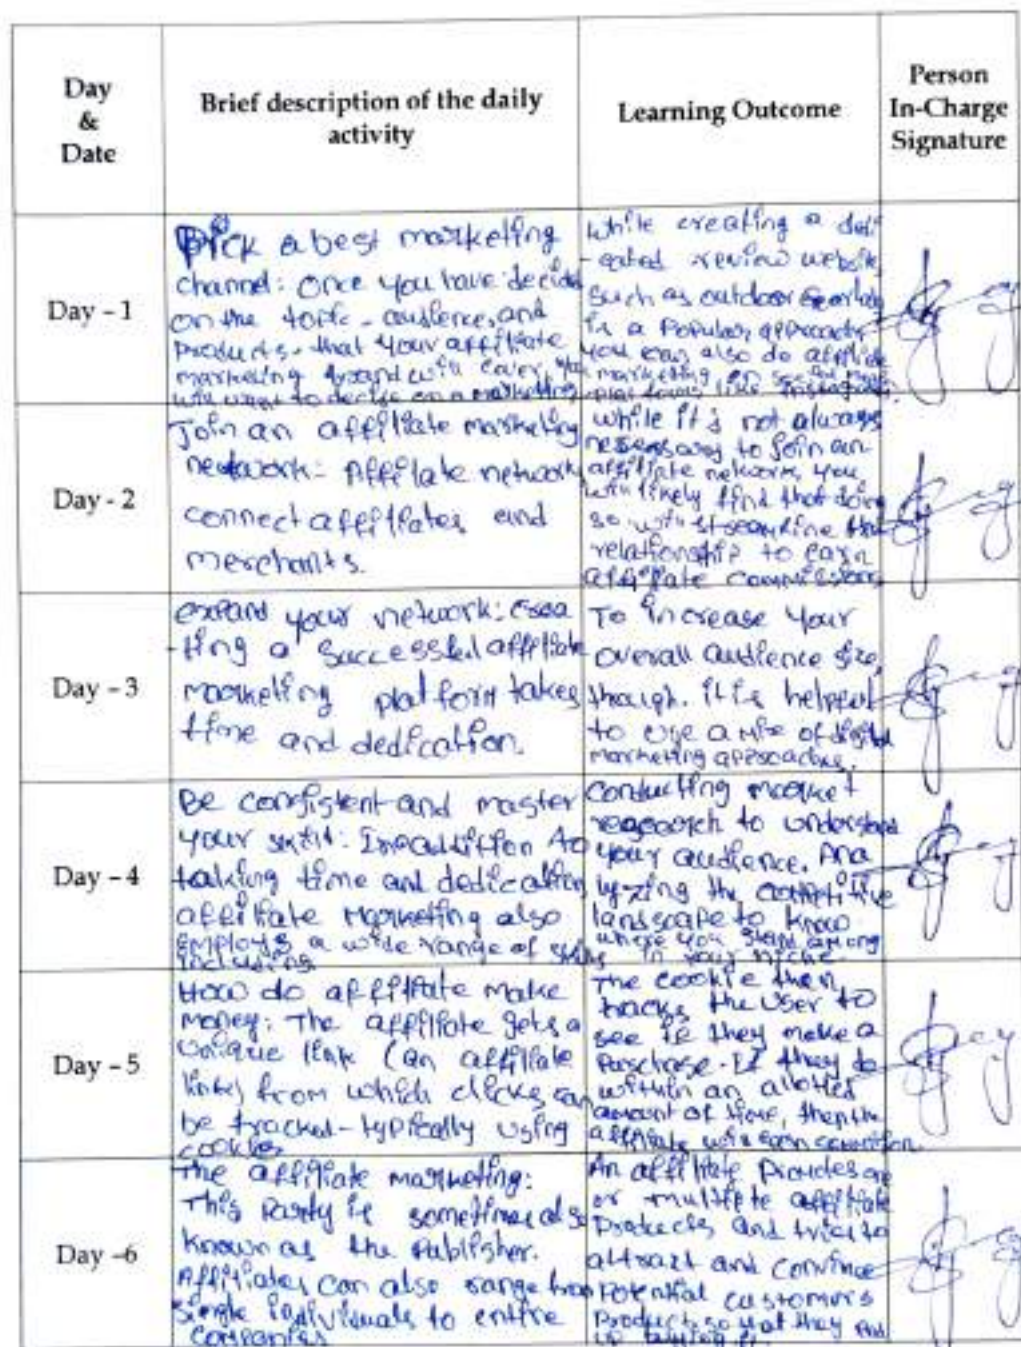 Day
&
Date
Brief description of the daily
activity
Learning Outcome
Person
In-Charge
Signature
Day - 1
Pick a best marketing
channel: Once you have decided
on the topic - audience, and
products - that your affiliate
marketing brand will cover, you
will want to decide on a marketing
While creating a dedi
-cated review website
such as outdoor
is a popular approach
you can also do affiliate
marketing on
platforms like Instagram.
Day - 2
Join an affiliate marketing
network: Affilate network
connect affiliates and
merchants.
While it's not always
necessary to join an
affiliate network, you
will likely find that doing
so will streamline the
relationship to earn
affiliate commissions
Day - 3
expand your network: Crea
-ting a Successful affiliate
marketing platform takes
time and dedication.
To increase your
overall audience size,
though. it is helpful
to use a mix of digital
marketing approaches.
Day - 4
Be consistent and master
your skill: In addition to
taking time and dedication,
affiliate marketing also
employs a wide range of skills
including
Conducting market
research to understand
your audience. Ana
lyzing the competitive
landscape to know
where you stand among
in your niche.
Day - 5
How do affiliate make
money: The affiliate gets a
unique link (an affiliate
link) from which clicks can
be tracked - typically using
cookies
The cookie then
tracks the user to
see if they make a
purchase. If they do
within an allotted
amount of time, then the
affiliate will earn
Day -6
The affiliate marketing:
This party is sometimes also
known as the publisher.
Affiliates can also range from
single individuals to entire
companies
An affiliate provides one
or multiple affiliate
products and tries to
attract and convince
potential customers
product, so that they end
up buying it.